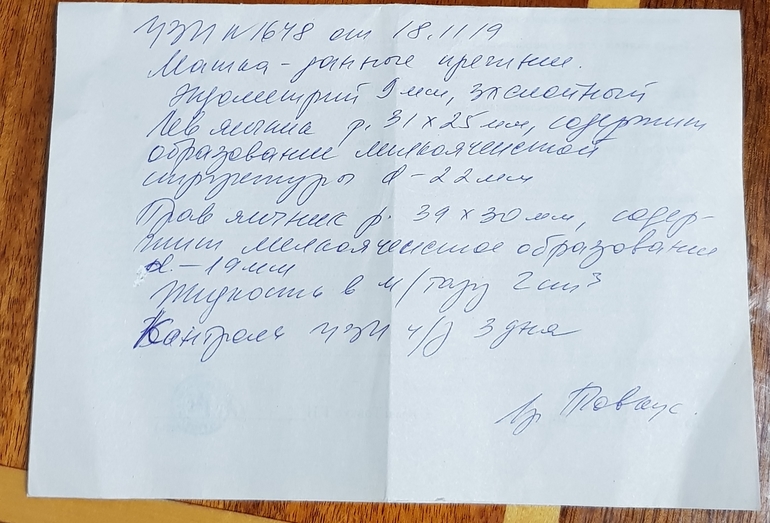 УЗИ №1648 от 18.11.19
Матка - данные прежние.
Эндометрий 9 мм, 3х слойный
Лев яичник р. 31 х 25 мм, содержит
образование мелкоячеистой
структуры d - 22 мм
Прав яичник р. 39 х 30 мм, содер-
жит мелкоячеистое образование
d. - 19 мм
Жидкость в м/тазу 2 cm³
Контроль УЗИ ч/з 3 дня
Вр.